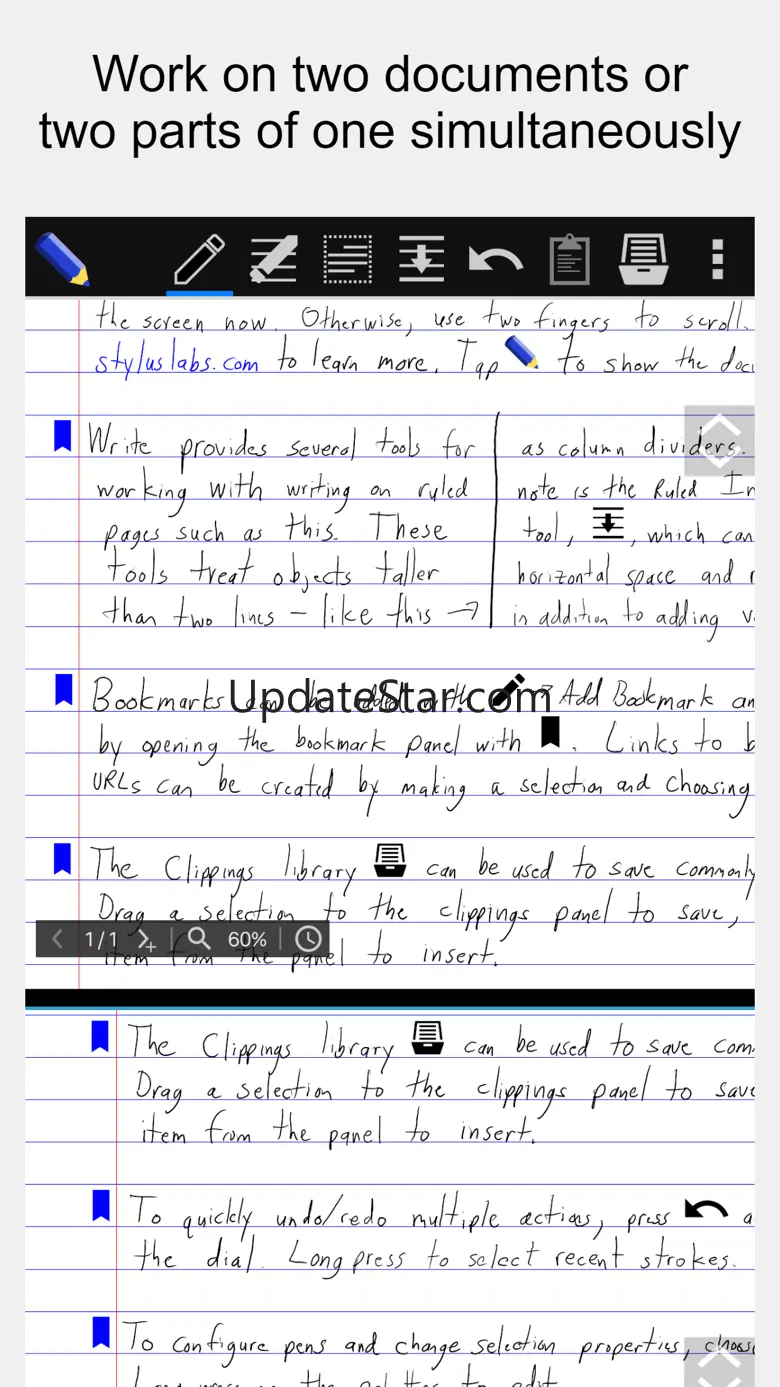 Work on two documents or
two parts of one simultaneously
the screen now. Otherwise, use two fingers to scroll.
styluslabs.com to learn more. Tap to show the docu
Write provides several tools for
working with writing on ruled
pages such as this. These
tools treat objects taller
than two lines – like this →
as column dividers.
note is the Ruled In
tool, , which can
horizontal space and
in addition to adding v
Bookmarks can be added with Add Bookmark an
UpdateStar.com
by opening the bookmark panel with . Links to b
URLs can be created by making a selection and choosing
The Clippings library can be used to save commonly
Drag a selection to the clippings panel to save,
item from the panel to insert.
1/1 60%
The Clippings library can be used to save com
Drag a selection to the clippings panel to save
item from the panel to insert.
To quickly undo/redo multiple actions, press a
the dial. Long press to select recent strokes.
To configure pens and change selection properties, choose